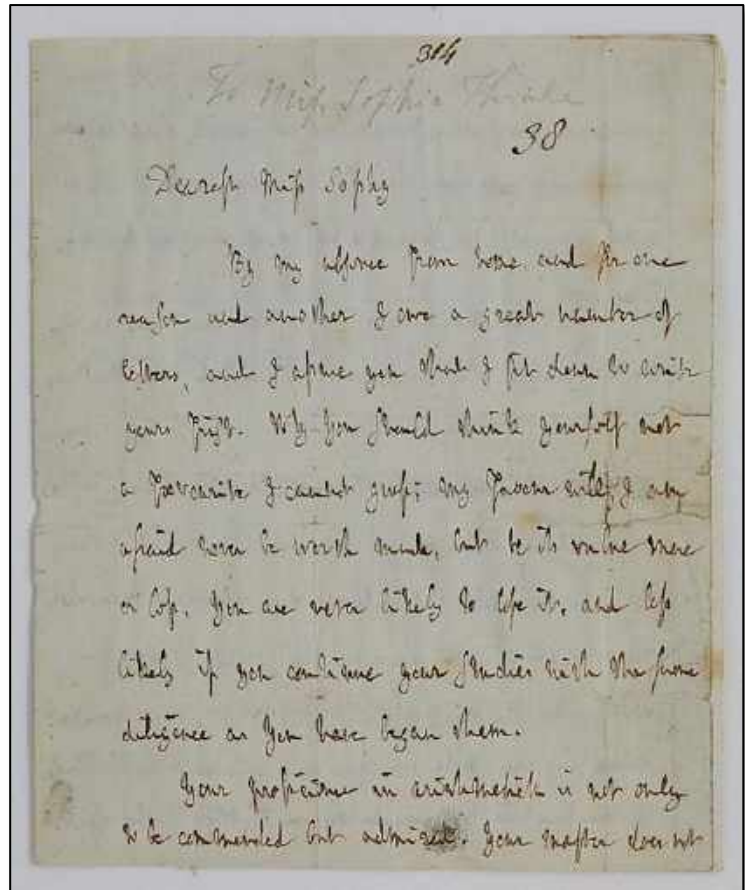 314
To Miss Sophia Thrale
38
Dearest Miss Sophy
By my absence from home and for one
reason and another I owe a great number of
letters, and I assure you that I sit down to write
yours first. Why you should think yourself not
a favourite I cannot guess; my favour will, I am
afraid never be worth much, but be its value more
or less, you are never likely to lose it, and less
likely if you continue your studies with the same
diligence as you have began them.
Your proficience in arithmetick is not only
to be commended but admired. Your master does not